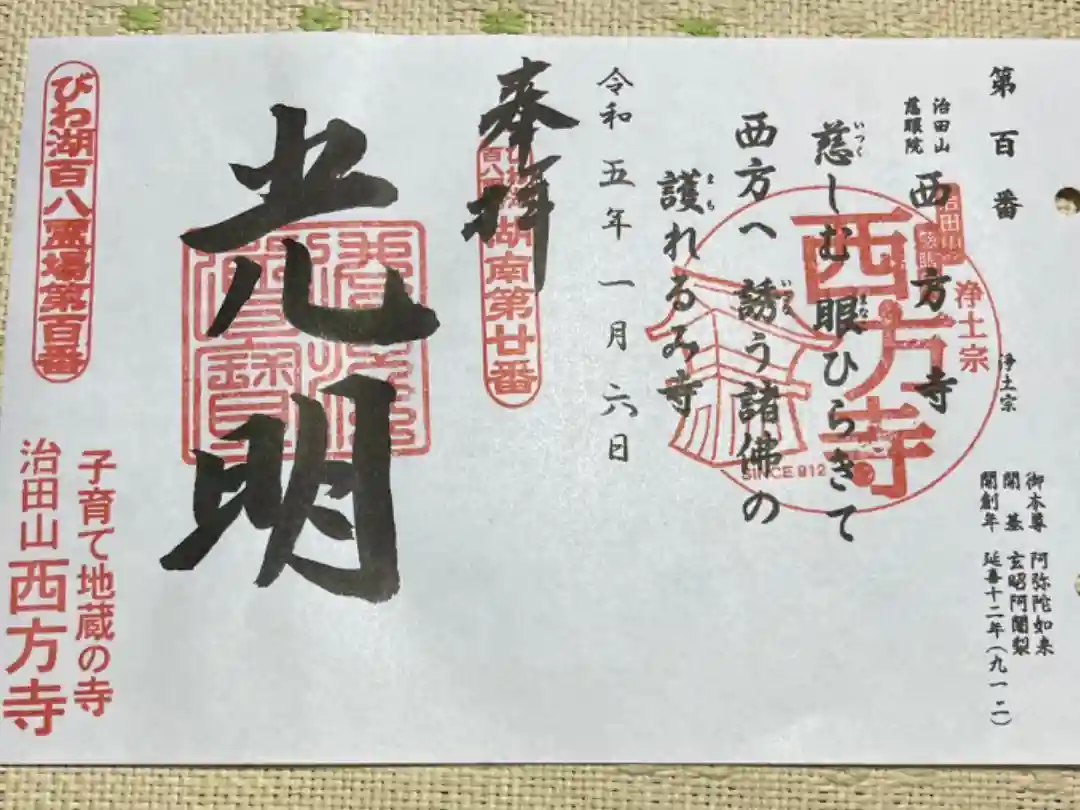 第百番
治田山
慈眼院
西方寺
浄土宗
御本尊 阿弥陀如来
開基 玄昭阿闍梨
開創年 延喜十二年(九一二)
慈しむ眼ひらきて
西方へ誘う諸佛の
護れるみ寺
西方寺
浄土宗
SINCE 912
令和五年一月六日
奉拝
湖南第廿番
光明
びわ湖百八霊場第百番
子育て地蔵の寺
治田山西方寺